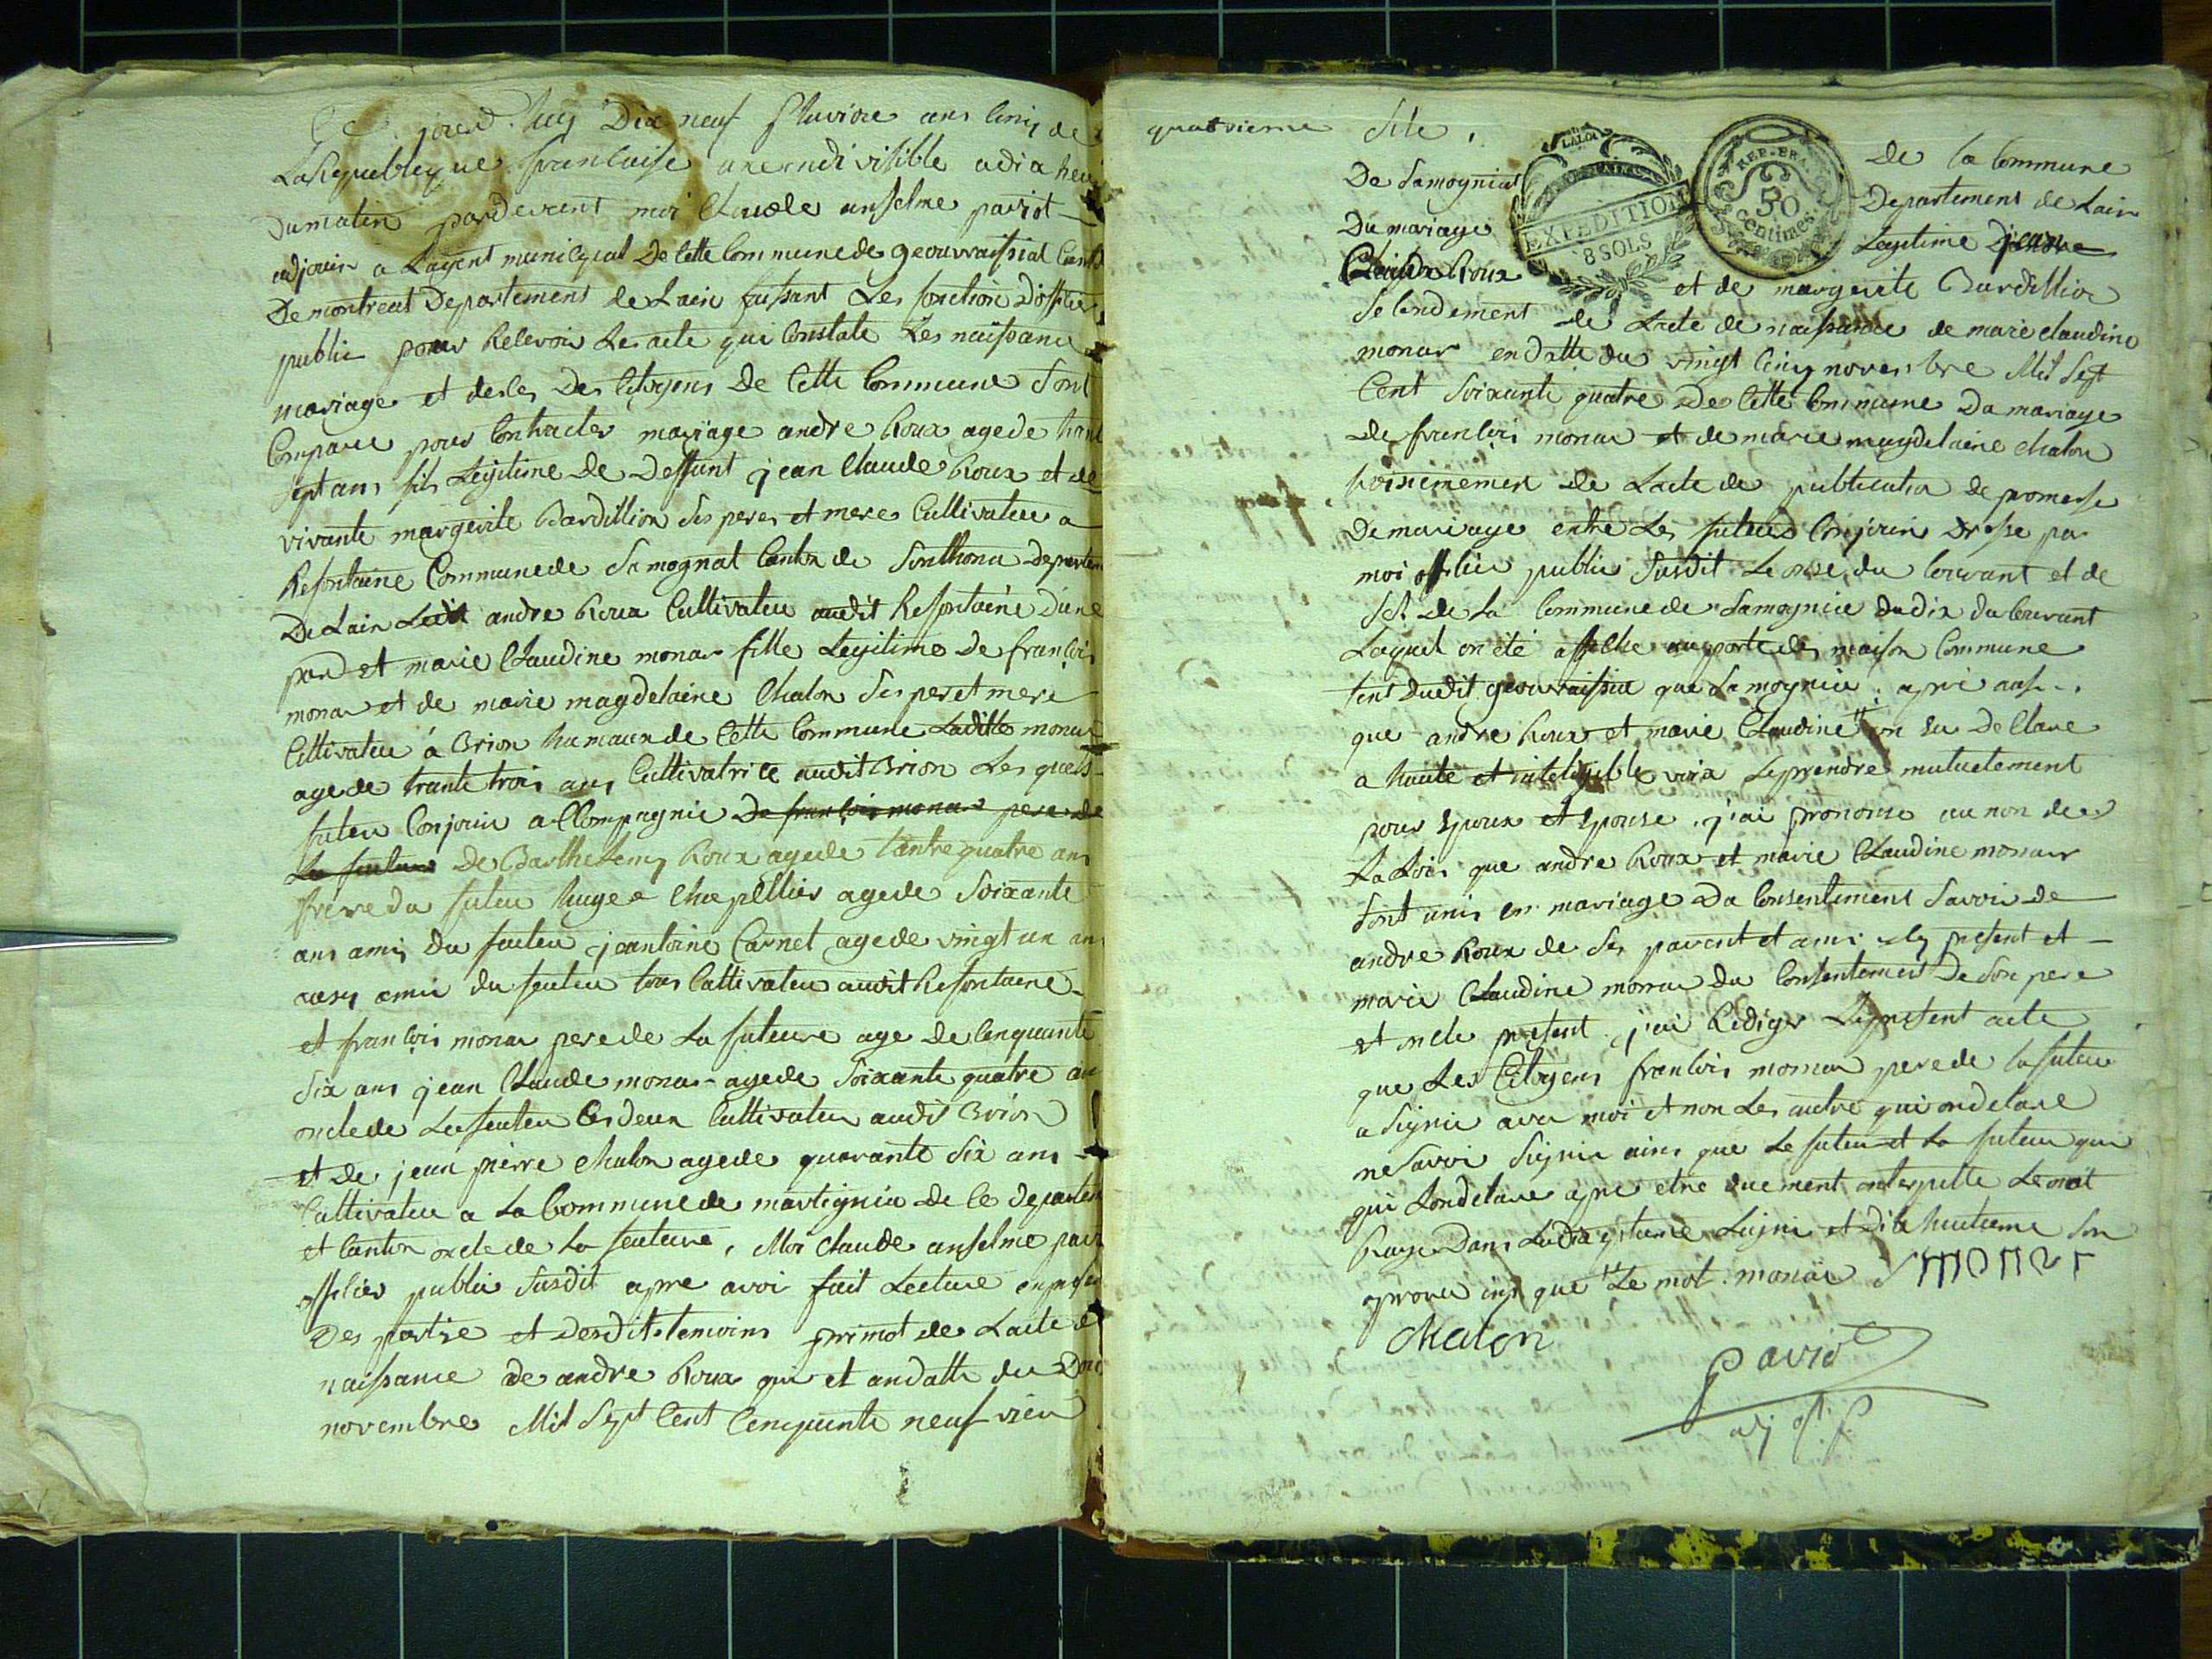 jourd'huy Dix neuf pluviose ans Cinq de
La Republeque francaise une endivisible a dix heu
Du matin pardevent moi Claude anselme paviot
adjoin a Lagent municipal De Cette Commune de geouvraissiat Cant
De montreal Departement de Lain faisant Les fonction Doffier
public pour Recevoir Les acte qui Constate Les naissance
mariage et deces Des Citoyens De Cette Commune Sont
Compare pour Contracter mariage andre Roux age de trant
sept ans fils Legitime De Deffunt jean Claude Roux et de
vivante margerite Bardillion Ses peres et mere Cultivateu a
Refontaine Commune de Samognat Canton de Sonthona departem
De Lain Ledit andre Roux Cultivateu audit Resfontaine d'une
pard et marie Claudine monar fille Legitime De françois
monar et de marie magdelaine Chalon Ses per et mere
Cultivateu à Brion hamaux de Cette Commune Laditte monar
agede trante trois ans Cultivatrice audit Brion Les quels
futeu Conjoin acCompagnie De françois monar pere de
La future De Barthelemy Roux agede tantre quatre ans
frere du futeu huge Chapellier agede Soixante
ans amis du futeu jeantoine Carnet agede vingt un ans
ausy amis du futeu tous Cultivateu audit Resfontaine
et françois monar pere de La future age de Cinquante
Six ans jean Claude monar agede Soixante quatre an
oncle de La futeu Ces deux Cultivateu audit Brion
et de jean pierre Chalon agede quarante Six ans
Cultivateu a La Commune de martignia De Ce departem
et Canton oncle de La feuture, Moi Claude anselme pavi
officier public Susdit apre avoi fait Lecture en presen
Des partie et desdits temoins primot de Lacte de
naissance de andre Roux qui et andatte du Dou
novembre Mil Sept Cent Cinquante neuf vieu
quatrieme file,
LALOI
EXPEDITION
8 SOLS
REP. FRA.
50
centimes
De Samogniat De la Commune
Du mariage Departement de Lain
Claude Roux Legitime Djeanne
et de margerite Bardillion
Secondement de Lacte de naissance de marie claudine
monar en datte du vingt Cinq novembre Mil Sept
Cent Soixante quatre De Cette Commune Du mariage
de françois monar et de marie magdelaine chalon
troisiememen de Lacte de publication de promesse
De mariage entre Les futeu Conjoin Dresse par
moi officier public Susdit Le onse du Courant et de
de La Commune de Samognia du dix du Courant
Laquel on été affiche au porte des maison Commune
tent dudit geouvraissia que Samognia apre
que andre Roux et marie Claudine " on eu De Clare
a haute et intelegible voix Se prendre mutuelement
pour Epoux et Epouse. j'ai prononse au non de
La Loi que andre Roux et marie Claudine monar
Sont unis en mariage Du Consentement Savoir de
andre Roux de Ses parent et amis present et
marie Claudine monar du Consentement De Son pere
et oncle present. j'ai Rediger Le present acte
que Les Citoyens françois monar pere de La futeu
a Signie avec moi et non Les autre qui on declare
ne Savoi Signie ainsi que Le futeu et La futeu qui
qui Londeclare apre etre duement enterpelle Le mot
Raye Dans La Dix Ligne et dite huitieme Son
aprouve insi que " Le mot. monar Smonar
Chalon
Paviot
adj of. p.